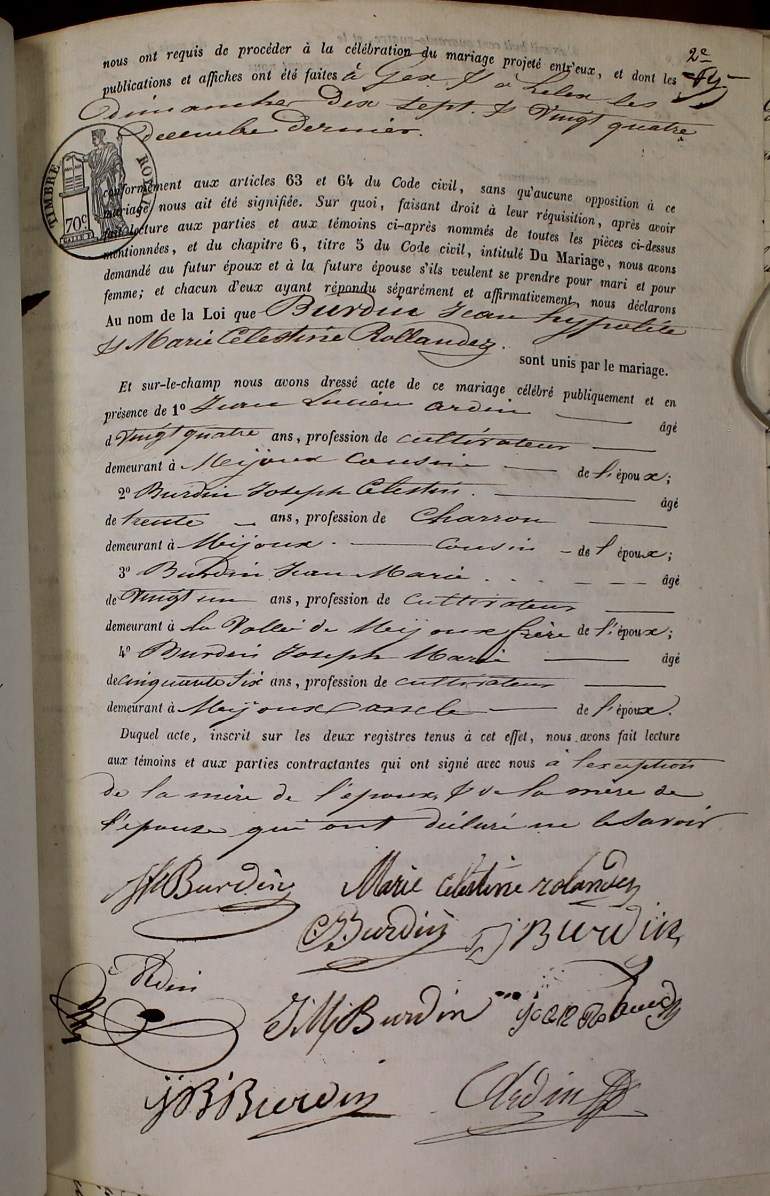 2e
nous ont requis de procéder à la célébration du mariage projeté entr'eux, et dont les
publications et affiches ont été faites à Gex & à Lelex les
dimanches dix sept & vingt quatre
decembre dernier.
TIMBRE ROYAL
70c
conformément aux articles 63 et 64 du Code civil, sans qu'aucune opposition à ce
mariage nous ait été signifiée. Sur quoi, faisant droit à leur réquisition, après avoir
fait lecture aux parties et aux témoins ci-après nommés de toutes les pièces ci-dessus
mentionnées, et du chapitre 6, titre 5 du Code civil, intitulé Du Mariage, nous avons
demandé au futur époux et à la future épouse s'ils veulent se prendre pour mari et pour
femme; et chacun d'eux ayant répondu séparément et affirmativement, nous déclarons
Au nom de la Loi que Burdin Jean hypolite
& Marie Célestine Rollandez.
sont unis par le mariage.
Et sur-le-champ nous avons dressé acte de ce mariage célébré publiquement et en
présence de 1º Jean Lucien ardin âgé
d vingt quatre ans, profession de cultivateur
demeurant à Mijoux Cousin de l'époux;
2º Burdin Joseph Célestin. âgé
de trente ans, profession de Charron
demeurant à Mijoux. cousin de l'époux;
3º Burdin Jean Marie âgé
de vingt un ans, profession de cultivateur
demeurant à la Vallé de Mijoux frère de l'époux;
4º Burdin Joseph Marie âgé
de cinquante six ans, profession de cultivateur
demeurant à Mijoux de l'époux.
Duquel acte, inscrit sur les deux registres tenus à cet effet, nous avons fait lecture
aux témoins et aux parties contractantes qui ont signé avec nous à l'exception
de la mère de l'époux, & de la mère de
l'épouse qui ont déclaré ne le savoir
Burdin Marie celestine rolandez
C. Burdin j Burdin
Ardin
J M Burdin
j B Burdin Ardin